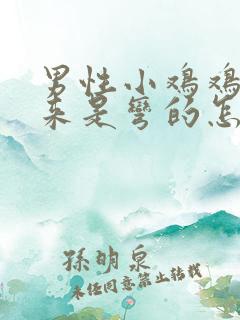 男性小鸡鸡
来是弯的怎
孫明泉
未经同意禁止转载